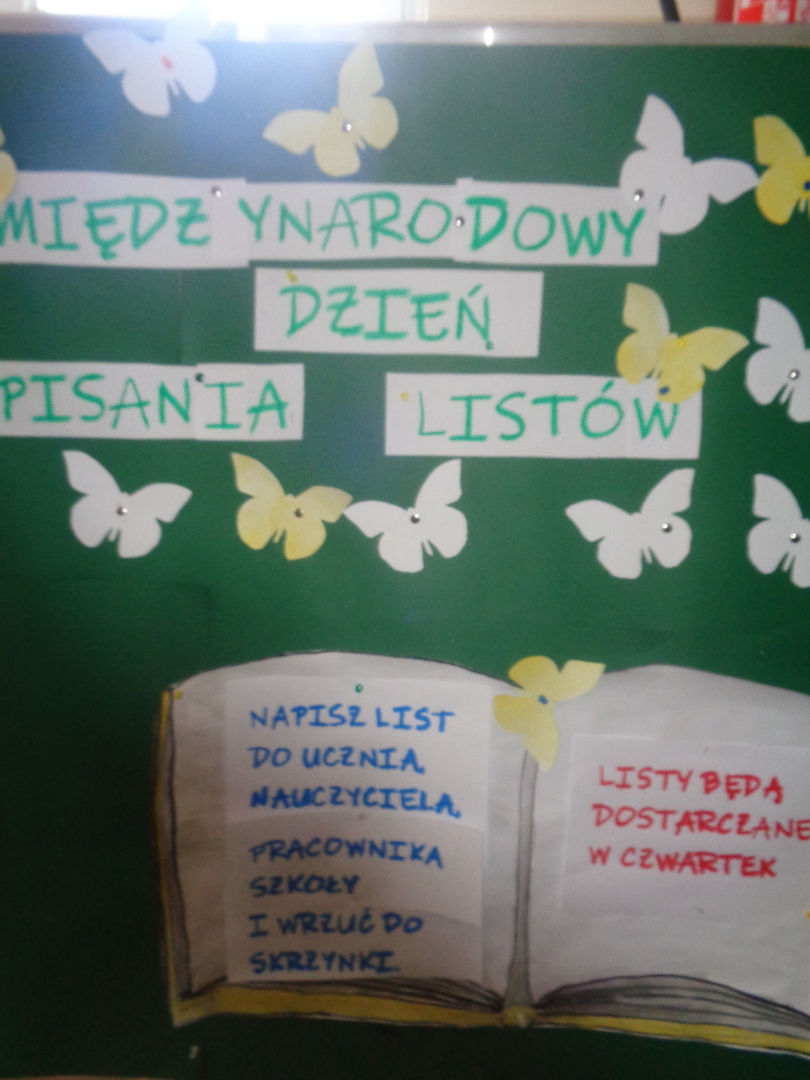 MIĘDZYNARODOWY
DZIEŃ
PISANIA LISTÓW
NAPISZ LIST
DO UCZNIA,
NAUCZYCIELA,
PRACOWNIKA
SZKOŁY
I WRZUĆ DO
SKRZYNKI.
LISTY BĘDĄ
DOSTARCZANE
W CZWARTEK